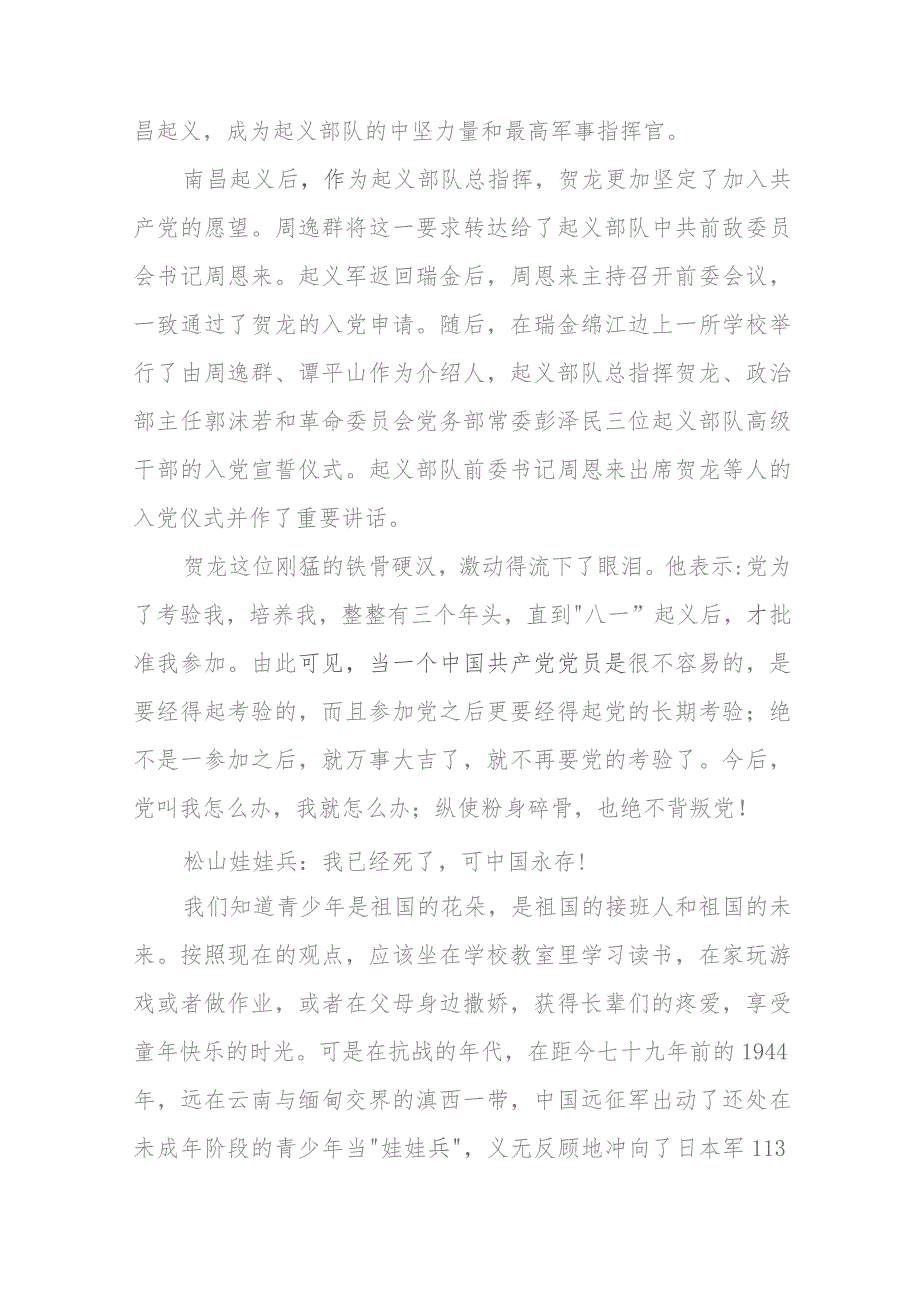 昌起义，成为起义部队的中坚力量和最高军事指挥官。
南昌起义后，作为起义部队总指挥，贺龙更加坚定了加入共
产党的愿望。周逸群将这一要求转达给了起义部队中共前敌委员
会书记周恩来。起义军返回瑞金后，周恩来主持召开前委会议，
一致通过了贺龙的入党申请。随后，在瑞金绵江边上一所学校举
行了由周逸群、谭平山作为介绍人，起义部队总指挥贺龙、政治
部主任郭沫若和革命委员会党务部常委彭泽民三位起义部队高级
干部的入党宣誓仪式。起义部队前委书记周恩来出席贺龙等人的
入党仪式并作了重要讲话。
贺龙这位刚猛的铁骨硬汉，激动得流下了眼泪。他表示:党为
了考验我，培养我，整整有三个年头，直到"八一”起义后，才批
准我参加。由此可见，当一个中国共产党党员是很不容易的，是
要经得起考验的，而且参加党之后更要经得起党的长期考验；绝
不是一参加之后，就万事大吉了，就不再要党的考验了。今后，
党叫我怎么办，我就怎么办；纵使粉身碎骨，也绝不背叛党！
松山娃娃兵：我已经死了，可中国永存!
我们知道青少年是祖国的花朵，是祖国的接班人和祖国的未
来。按照现在的观点，应该坐在学校教室里学习读书，在家玩游
戏或者做作业，或者在父母身边撒娇，获得长辈们的疼爱，享受
童年快乐的时光。可是在抗战的年代，在距今七十九年前的1944
年，远在云南与缅甸交界的滇西一带，中国远征军出动了还处在
未成年阶段的青少年当"娃娃兵"，义无反顾地冲向了日本军113